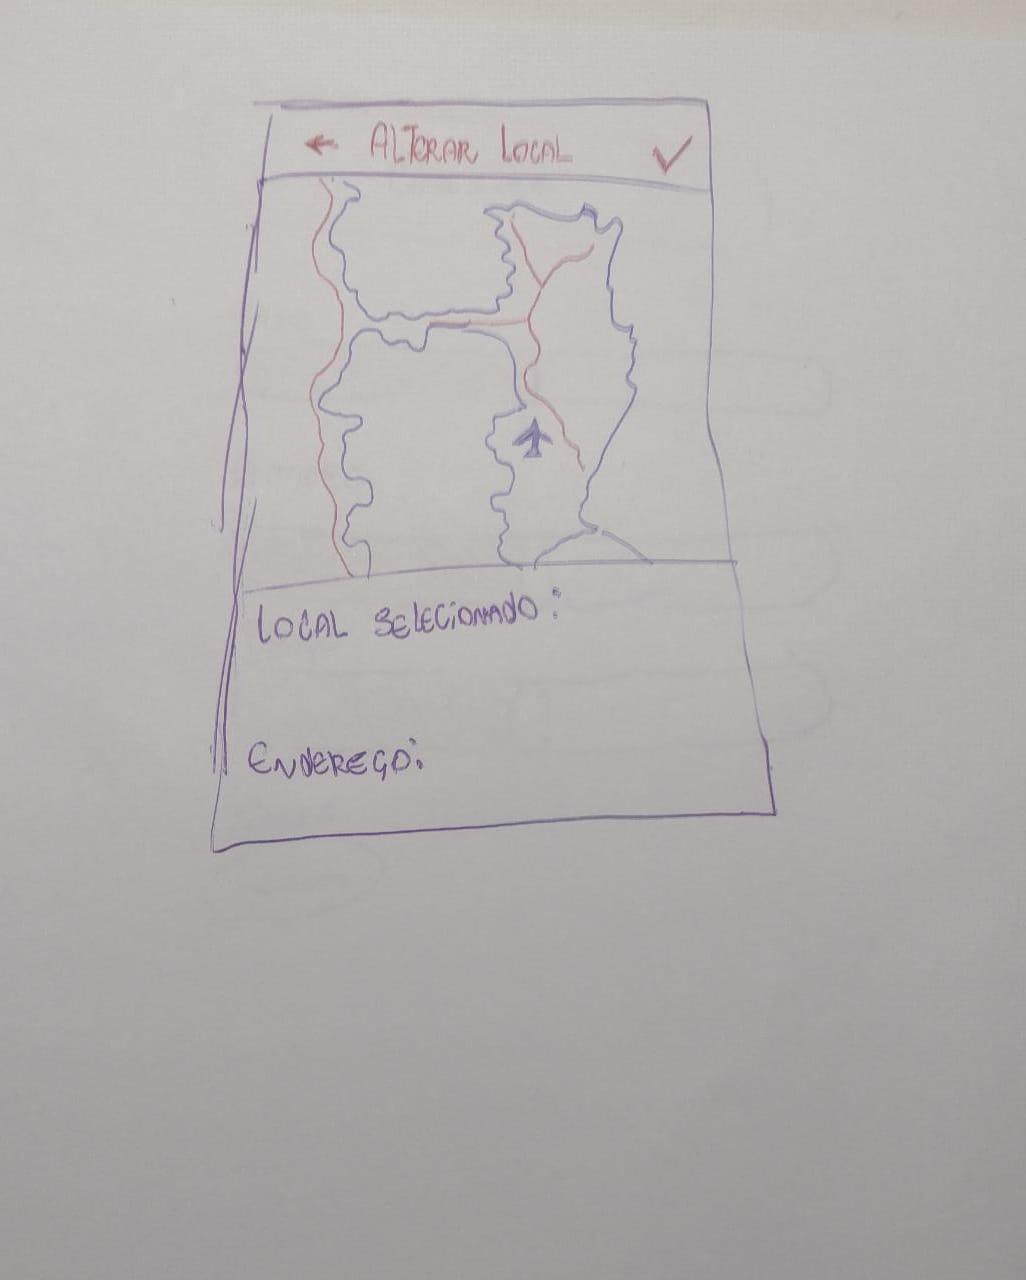 ← ALTERAR LOCAL ✓
LOCAL SELECIONADO:
ENDEREÇO: